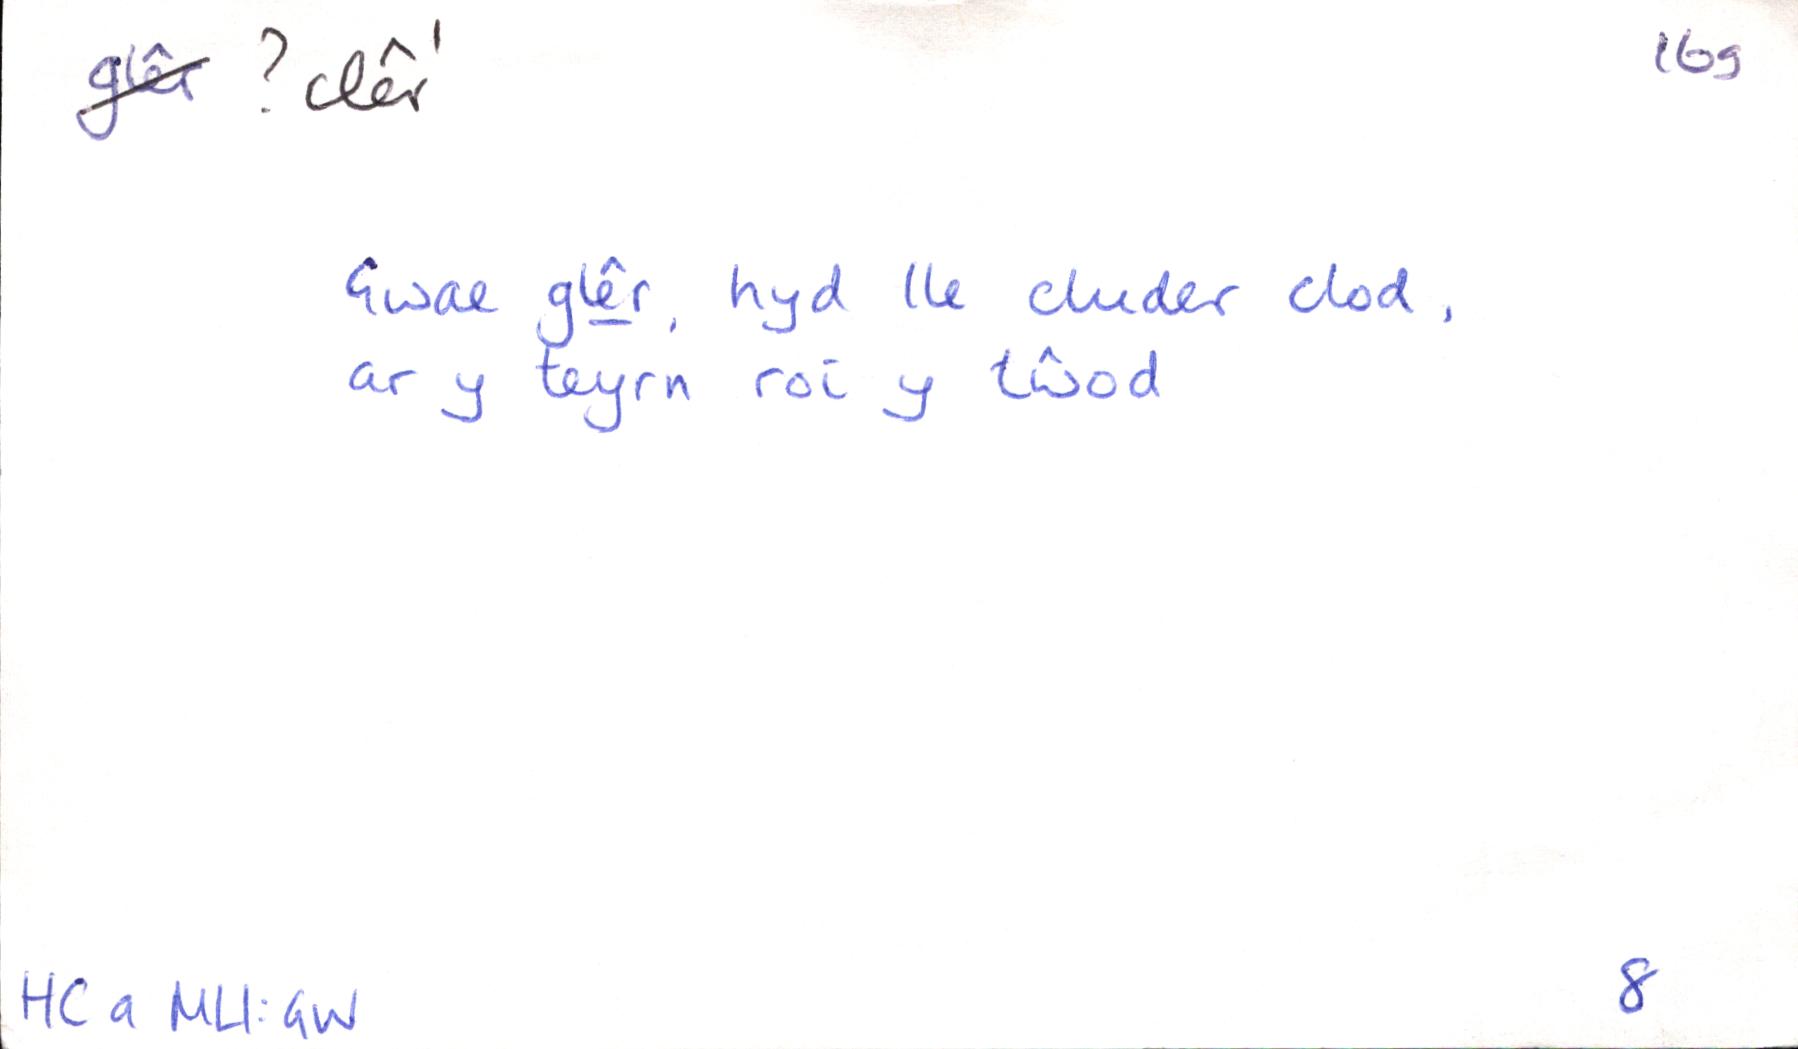 glêr ? clêr¹ 16g
Gwae glêr, hyd lle cluder clod,
ar y teyrn roi y tŵod
HC a MLl: GW 8